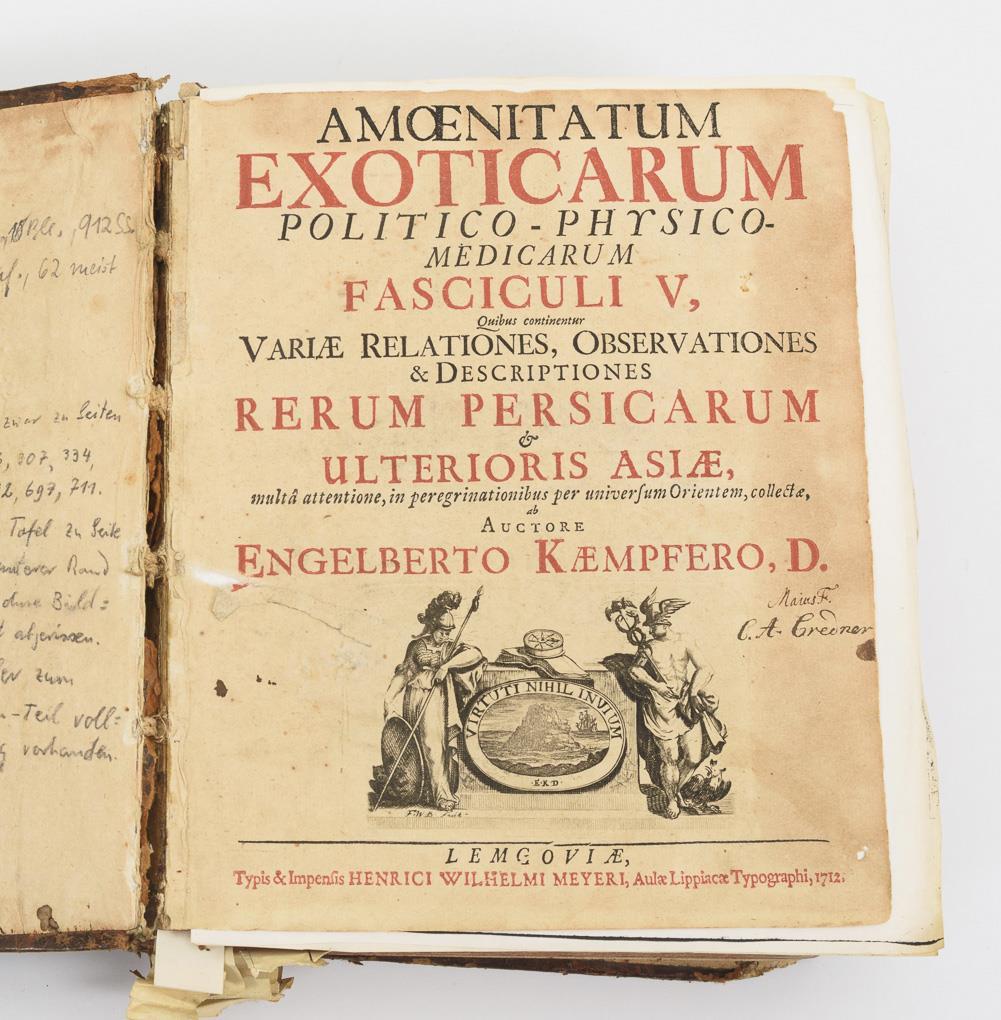 Bll., 912 SS.
62 meist
zwar zu Seiten
307, 334,
697, 711.
Tafel zu Seite
unterer Rand
ohne Bild=
abgerissen.
zum
-Teil voll=
vorhanden.
AMŒNITATUM
EXOTICARUM
POLITICO-PHYSICO-
MEDICARUM
FASCICULI V,
Quibus continentur
VARIÆ RELATIONES, OBSERVATIONES
& DESCRIPTIONES
RERUM PERSICARUM
&
ULTERIORIS ASIÆ,
multâ attentione, in peregrinationibus per universum Orientem, collectæ,
ab
AUCTORE
ENGELBERTO KÆMPFERO, D.
C. A. Credner
VIRTUTI NIHIL INVIUM
E.K.D.
F.W.B.
LEMGOVIÆ,
Typis & Impensis HENRICI WILHELMI MEYERI, Aulæ Lippiacæ Typographi, 1712.